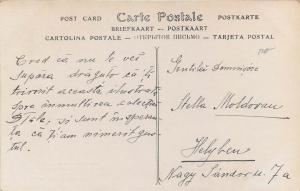 POST CARD Carte Postale POSTKARTE
BRIEFKAART — POSTKAART
CARTOLINA POSTALE — ОТКРЫТОЕ ПИСЬМО — TARJETA POSTAL
Cred că nu te vei
supăra dragută că ți
trimit această ilustrată
spre înmulțirea colecției
și sunt în speranța
că ți-am nimerit gus-
tul.
Domnișoare
Stella Moldovan
Helyben
Nagy Sándor u. 7a